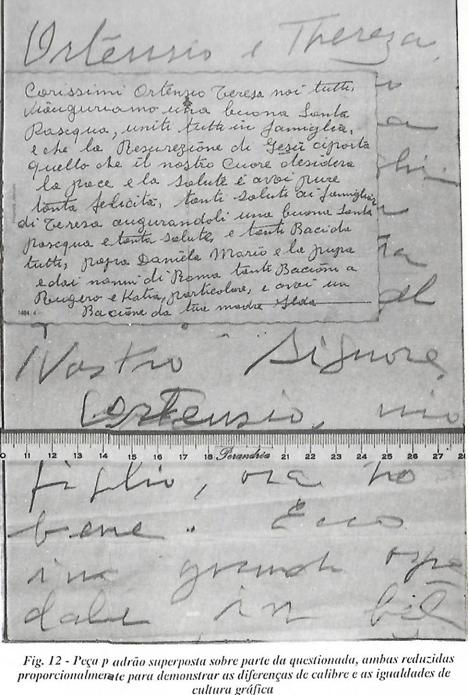 Ortensio e Thereza,
Carissimi Ortensio Teresa noi tutti,
viauguriamo una buona Santa
Pasqua, uniti tutti in famiglia,
e che la Resurezione di Gesù ciporta
quello che il nostro Cuore desidera
la pace e la Salute e avoi pure
tanta felicità, tanti saluti ai famiglia
di Teresa augurandoli una buone Santa
pasqua e tanta salute, e tanti Baci da
tutti, papa Daniela Mario e la pupa
e dai nonni di Roma tanti Bacioni a
Rugero e Katia, particolare, e avoi un
Bacione da tua madre Ilda
1404
Nostro Signore,
Ortensio, mio
0 11 12 13 14 15 16 17 18 Perandréa 21 22 23 24 25 26 27 28
figlio, ora no
bene. Ecco
in grande ospe
dale in
Fig. 12 - Peça p adrão superposta sobre parte da questionada, ambas reduzidas
proporcionalmente para demonstrar as diferenças de calibre e as igualdades de
cultura gráfica